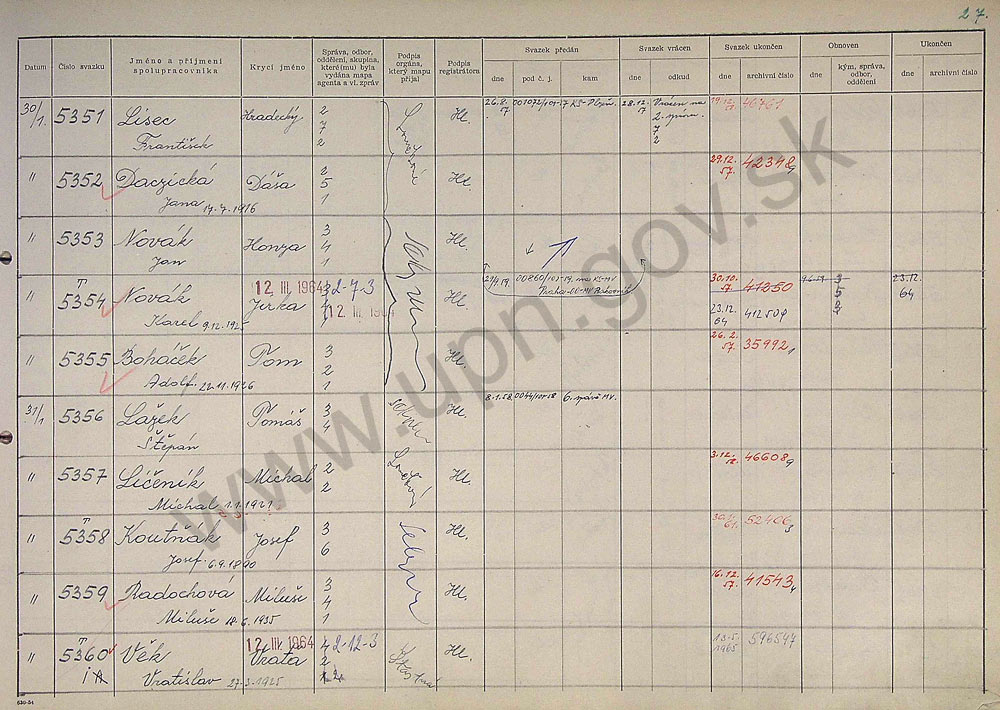 27.
Datum
Číslo svazku
Jméno a příjmení spolupracovníka
Krycí jméno
Správa, odbor, oddělení, skupina, které(mu) byla vydána mapa agenta a vl. zpráv
Podpis orgána, který mapu přijal
Podpis registrátora
Svazek předán
dne
pod č. j.
kam
Svazek vrácen
dne
odkud
Svazek ukončen
dne
archivní číslo
Obnoven
dne
kým, správa, odbor, oddělení
Ukončen
dne
archivní číslo
30/1. 5351 Lisec Hradecký 2 Hl. 26.8. 57 28.12. 57 Vrácen na 46761
František 7 2. správu.
2 7
2
" 5352 Daczická Dáša 2 Hl. 29.12. 57. 42348
Jana 17.7.1916 5
1
" 5353 Novák Honza 3 Hl.
Jan 4
1
" T 12. III. 1964 2-7-3
5354 Novák Jirka Hl. 30.10. 57. 41250 3 23.12. 64
Karel 9.12.1925 23.12. 64 5
2
" 5355 Boháček Tom 3 Hl. 26.2. 57. 35992
Adolf. 22.11.1926 2
1
31/1 5356 Lažek Tomáš 3 Hl. 8.1.58. 6. správě MV.
Štěpán 4
" 5357 Líčeník Michal 2 Hl. 3.12. 46608
Michal 1.1.1921 2
" T
5358 Koutňák Josef 3 Hl. 52406
Josef. 6.9.1890 6
" 5359 Radochová Miluše 3 Hl. 16.12. 57. 41543
Miluše 18.6.1935 4
1
" T 12. III. 1964 2-12-3
5360 Věk Vrata 4 Hl. 13.5. 1965 596547
Vratislav 27.3.1925 2
630-54
www.upn.gov.sk